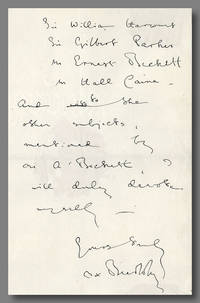 Sir William Harcourt
Sir Gilbert Parker
Mr Ernest Beckett
Mr Hall Caine -
And to the
other subjects,
mentioned by
on A. Beckett, I
will duly devote
myself -
Yours
Max Beerbohm